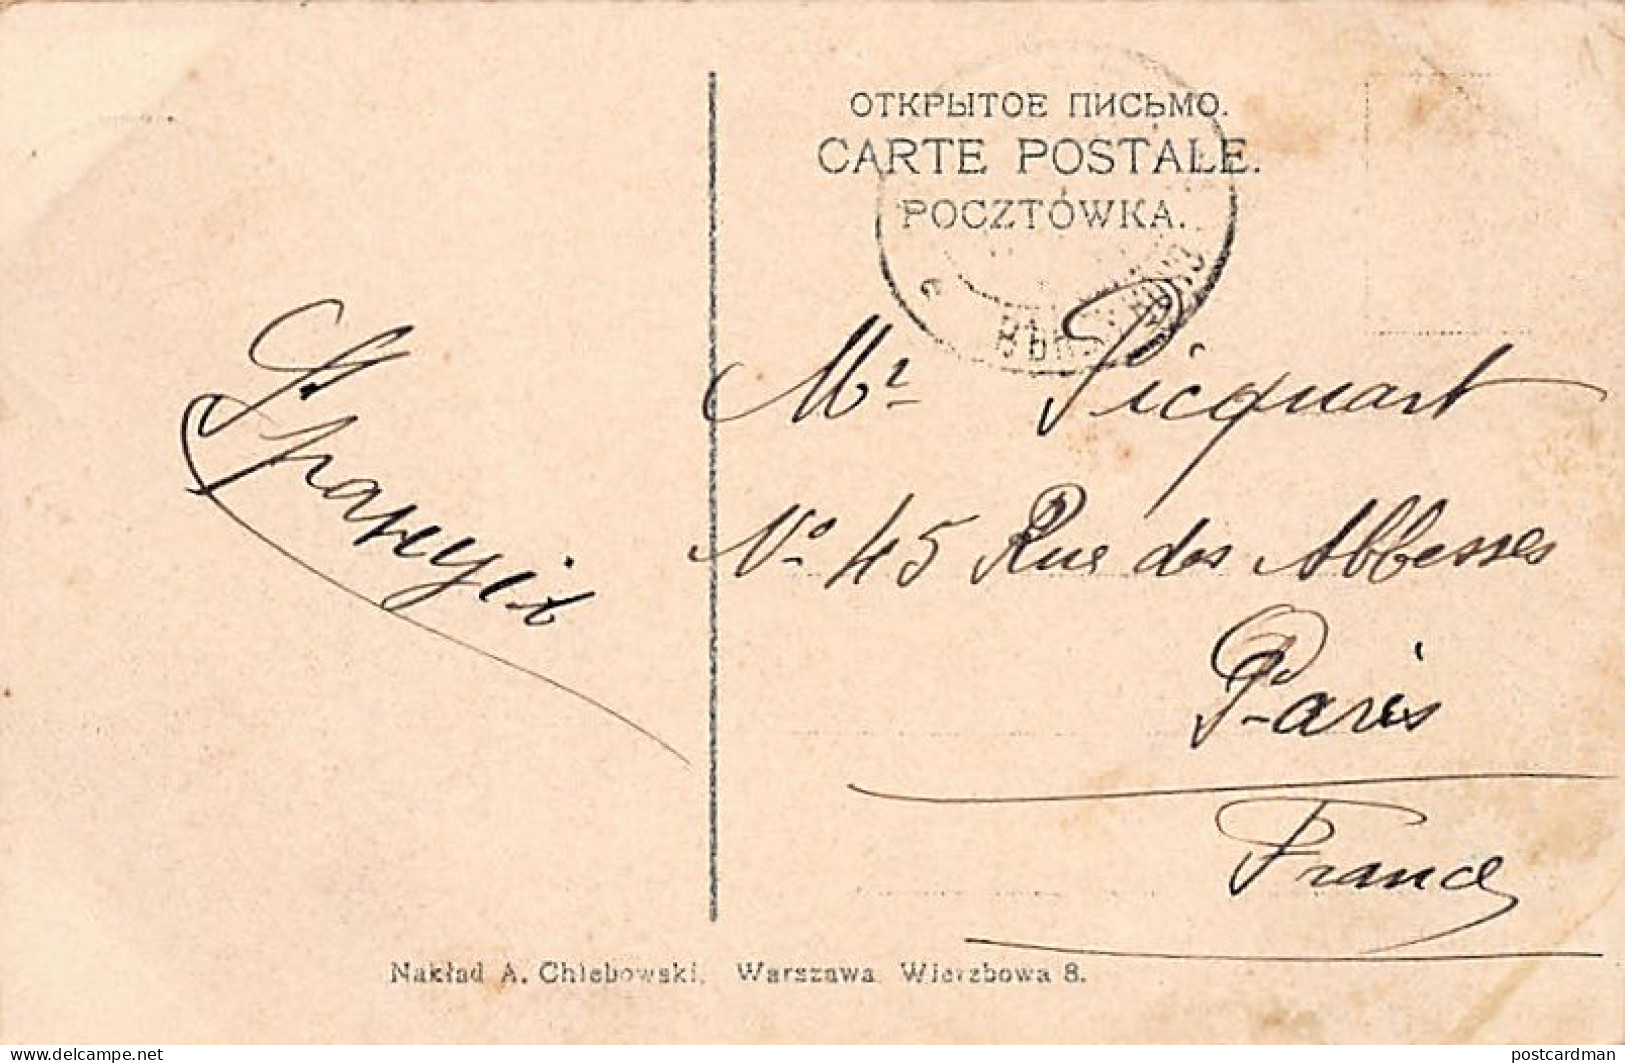 ОТКРЫТОЕ ПИСЬМО.
CARTE POSTALE.
POCZTÓWKA.
Mr Picquart
No 45 Rue des Abbesses
Paris
France
Nakład A. Chlebowski, Warszawa Wierzbowa 8.
www.delcampe.net
postcardman